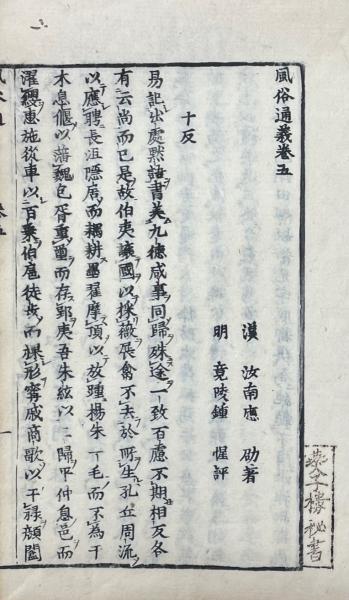 風俗通義卷五
漢　汝南應　劭著
明　竟陵鍾　惺評
十反
易記出處黙語書美九德咸事同歸殊途一致百慮不期相反各
有云尚而已是故伯夷讓國以採薇展禽不去於所生孔丘周流
以應聘長沮隱居而耦耕墨翟摩頂以放踵楊朱一毛而不為干
木息偃以藩魏包胥重璽而存郢夷吾朱紘以三歸平仲息邑而
濯纓惠施從車以百乘伯扈徒步而裸形甯戚商歌以干祿顏闔
燕子樓秘書